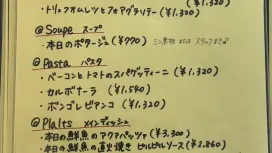 (¥1,320)
・トリュフオムレツとフォアグラソテー (¥1,320)
@Soupe スープ
・本日のポタージュ (¥990)
@Pasta パスタ
・ベーコンとトマトのスパゲッティーニ (¥1,320)
・カルボナーラ (¥1,540)
・ボンゴレビアンコ (¥1,320)
@Plalts メインディッシュ
・本日の鮮魚のアクアパッツァ (¥3,300)
・本日の鮮魚の直火焼き ピルピルソース (¥2,860)